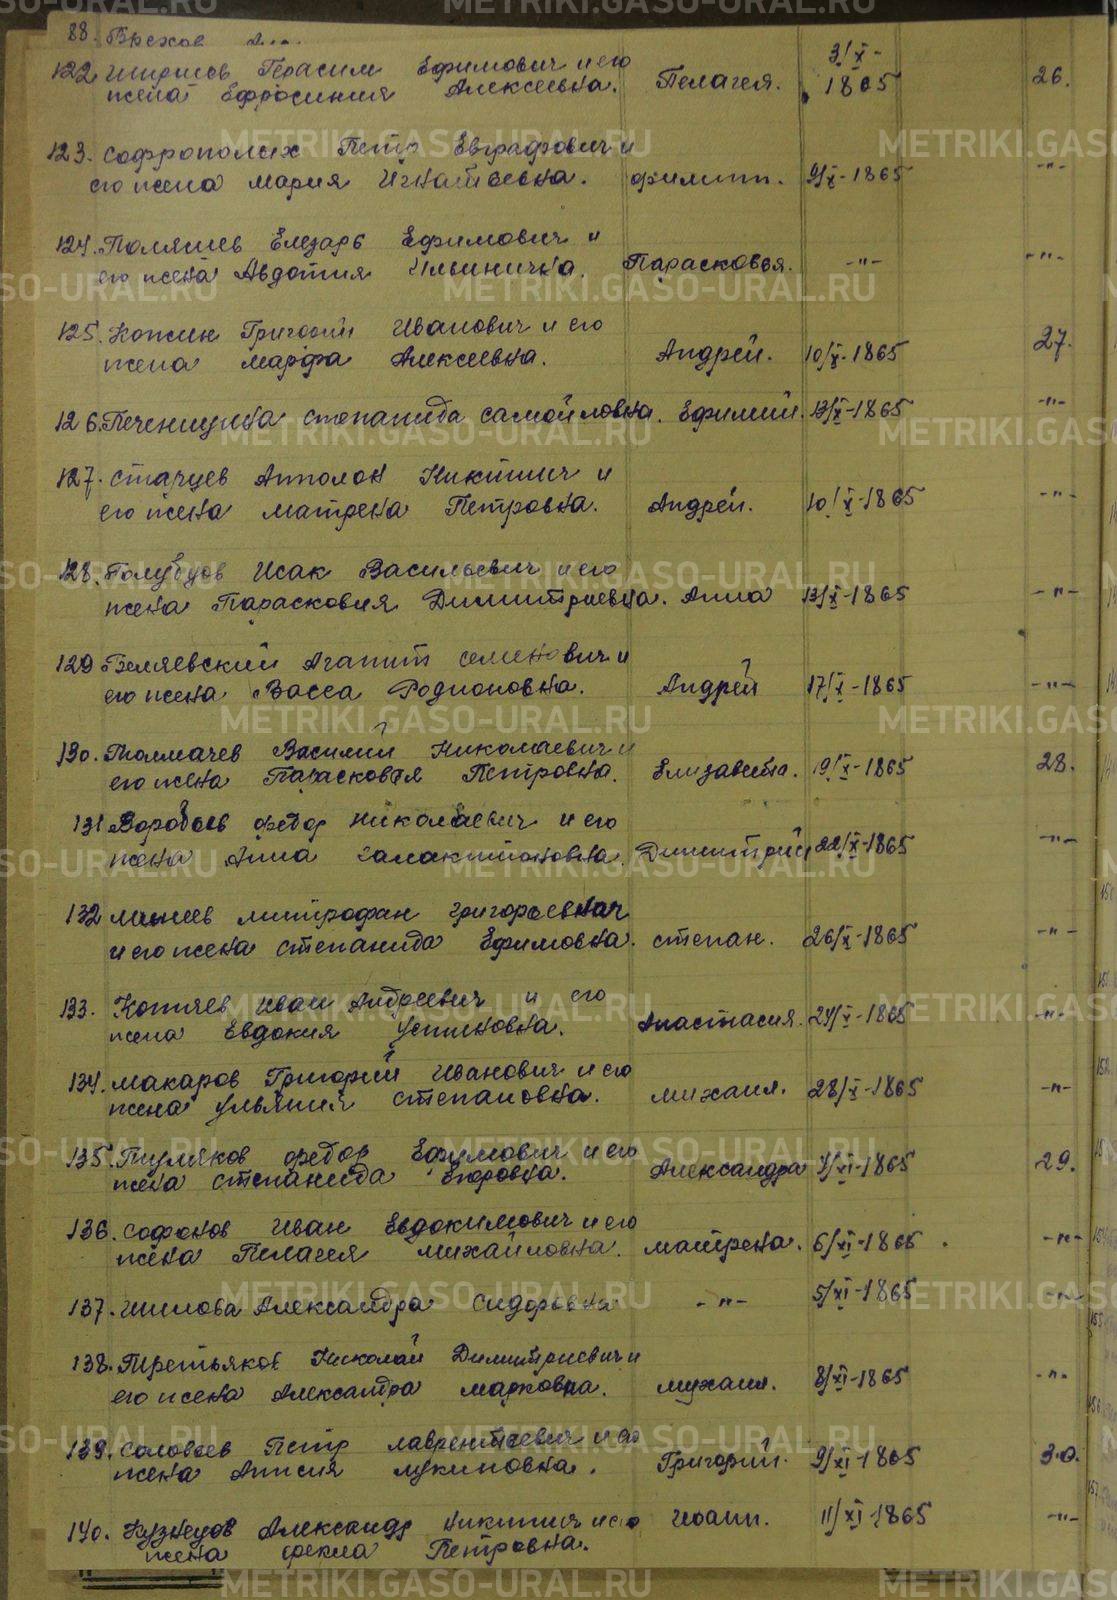 88. Брехов
122. Ширшов Герасим Ефимович и его Пелагея. 3/X- 26.
жена Ефросиния Алексеевна. 1865
123. Софрополих Петр Евграфович и
его жена Мария Игнатьевна. Филипп. 9/X-1865 -"-
124. Поляшев Елезарь Ефимович и
его жена Авдотия Ильинична. Парасковья. -"- -"-
125. Кожин Григорий Иванович и его 27.
жена Марфа Алексеевна. Андрей. 10/X-1865
126. Печеницина Степанида Самойловна. Ефимий. 13/X-1865 -"-
127. Старцев Апполон Никитич и
его жена Матрена Петровна. Андрей. 10/X-1865 -"-
128. Голубцов Исак Васильевич и его
жена Парасковия Димитриевна. Анна 13/X-1865 -"-
129. Беляевский Агапит Семенович и
его жена Васса Родионовна. Андрей 17/X-1865 -"-
130. Толмачев Василий Николаевич и 28.
его жена Парасковья Петровна. Елизавета. 19/X-1865
131. Воробьев Федор Николаевич и его
жена Анна Галактионовна. Димитрий 22/X-1865 -"-
132. Митрофан Григорьевич
и его жена Степанида Ефимовна. Степан. 26/X-1865 -"-
133. Коптяев Иван Андреевич и его
жена Евдокия Устиновна. Анастасия. 24/X-1865 -"-
134. Макаров Григорий Иванович и его
жена Ульяния Степановна. Михаил. 28/X-1865 -"-
135. Пуляков Федор Ефумович и его 29.
жена Степанида Егоровна. Александра 4/XI-1865
136. Софонов Иван Евдокимович и его
жена Пелагея Михайловна. Матрена. 6/XI-1865. -"-
137. Шилова Александра Сидоровна -"- 5/XI-1865 -"-
138. Третьяков Николай Димитриевич и
его жена Александра Марковна. Михаил. 8/XI-1865 -"-
139. Соловьев Петр Лаврентьевич и его
жена Анисия Лукиновна. Григорий. 9/XI-1865 30.
140. Кузнецов Александр Никитич и его Иоанн. 11/XI-1865 -"-
жена Фекла Петровна.